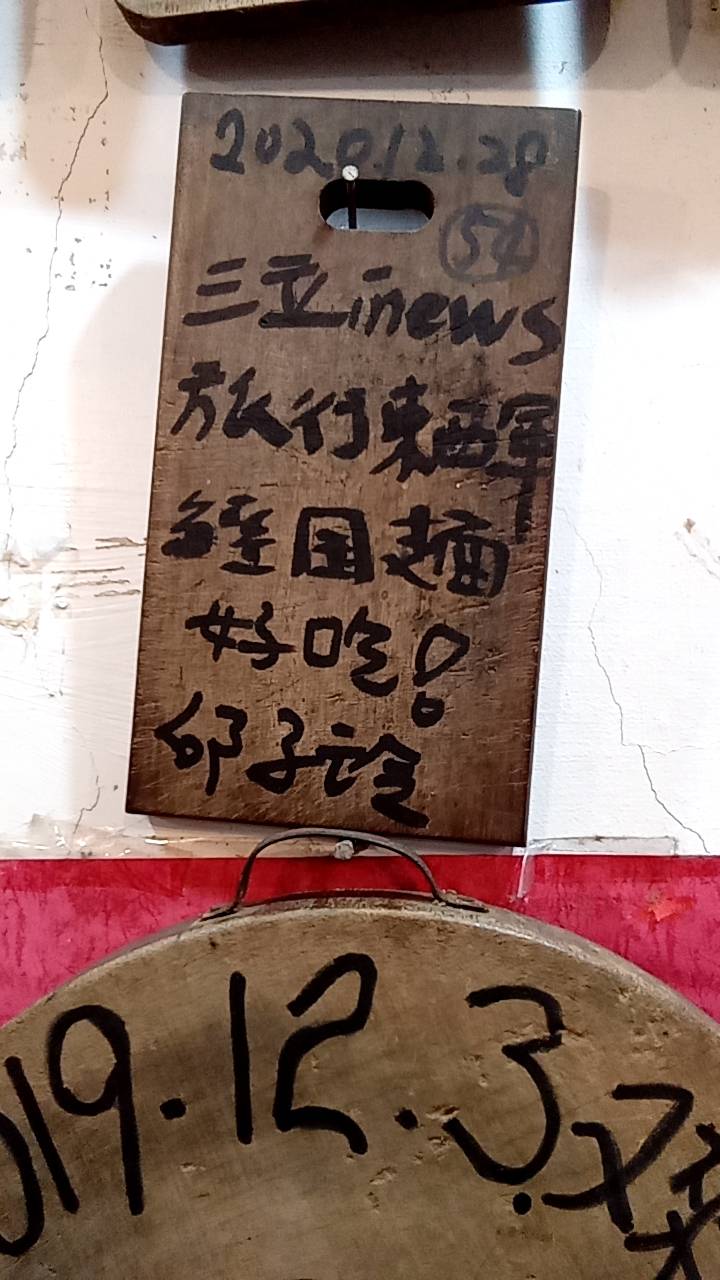 2020.12.28
54
三立inews
旅行來西軍
鍾国麺
好吃！
邱子詮
019.12.3.